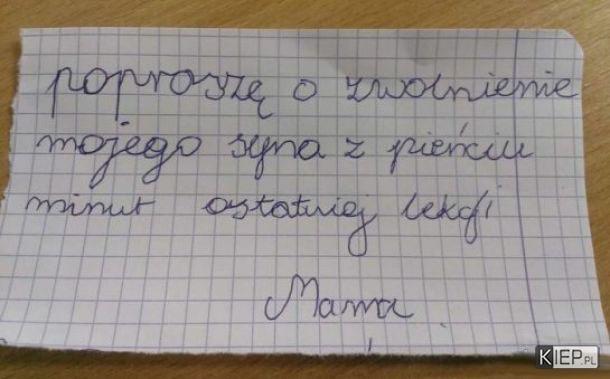 poproszę o zwolnienie
mojego syna z pieńciu
minut ostatniej lekcji
Mama
KIEP.PL